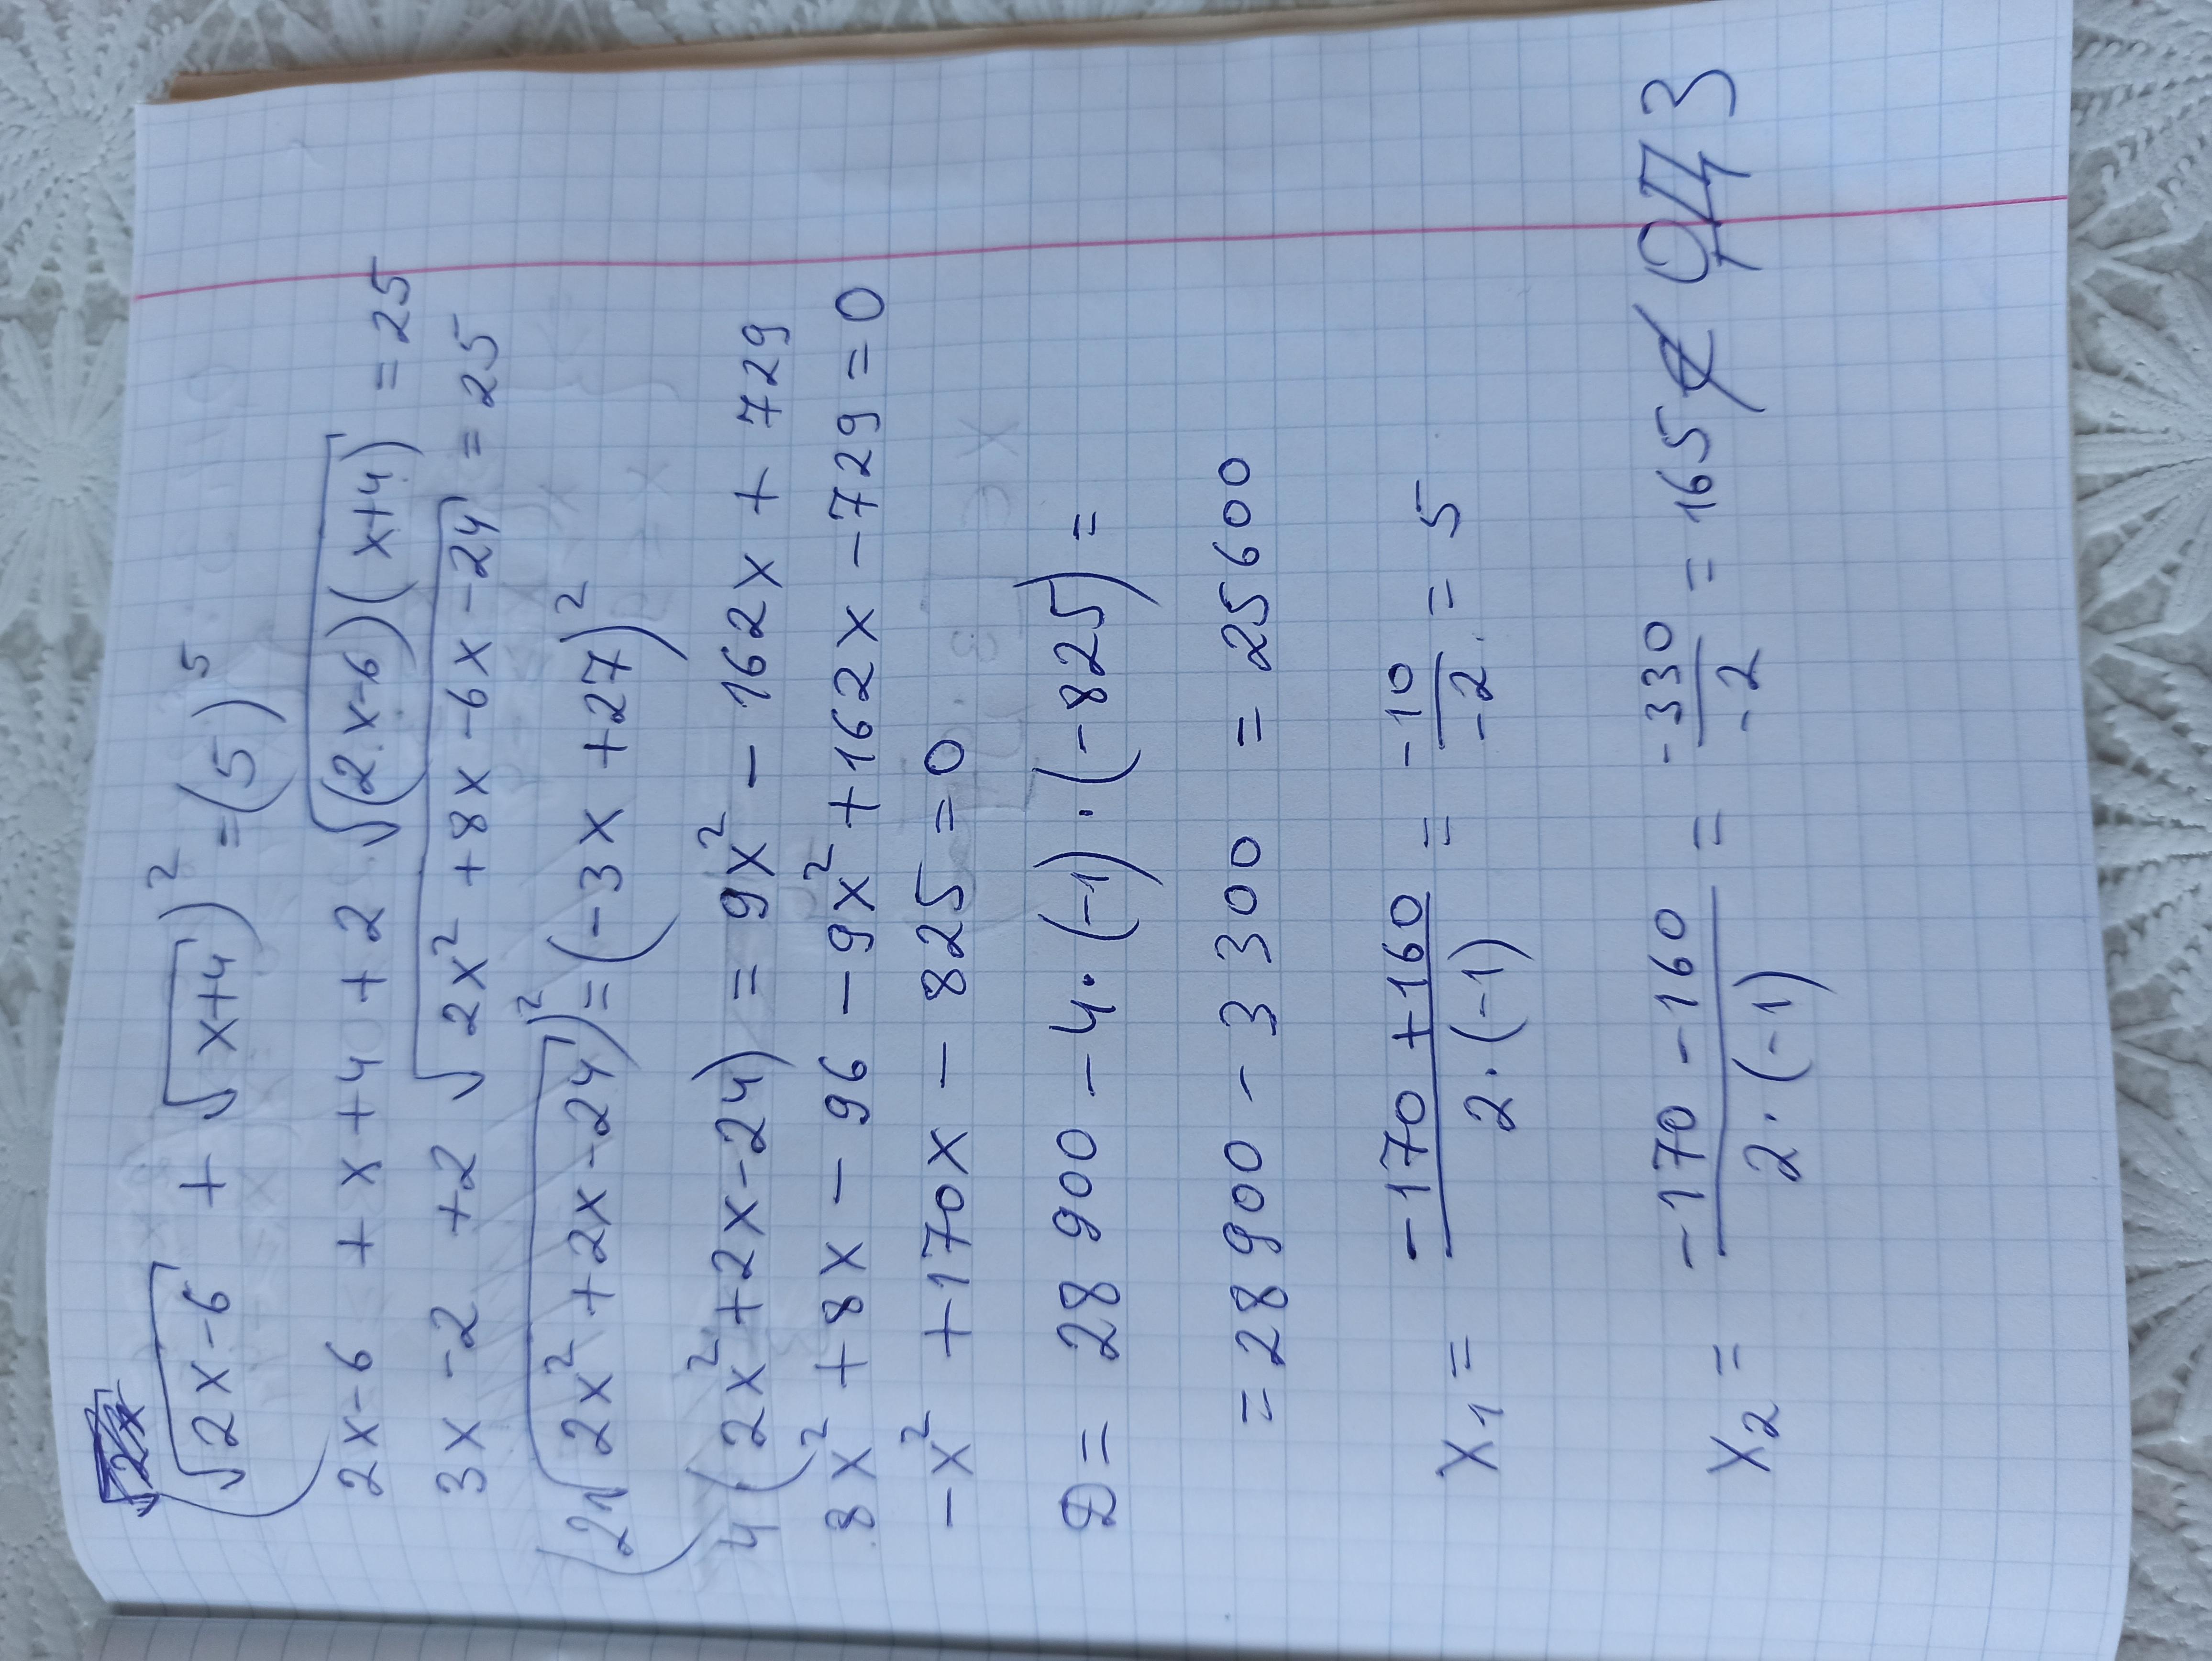 (√(2x-6) + √(x+4))² = (5)⁵
2x-6 + x+4 + 2 √((2x-6)(x+4)) = 25
3x -2 +2 √(2x² +8x -6x -24) = 25
(2√(2x² +2x -24))² = (-3x +27)²
4(2x² +2x -24) = 9x² - 162x + 729
8x² +8x - 96 - 9x² +162x -729 = 0
-x² +170x - 825 = 0
D = 28 900 - 4·(-1)·(-825) =
= 28 900 - 3 300 = 25600
x₁ = (-170 +160)/(2·(-1)) = -10/-2 = 5
x₂ = (-170 -160)/(2·(-1)) = -330/-2 = 165 ∉ ОДЗ